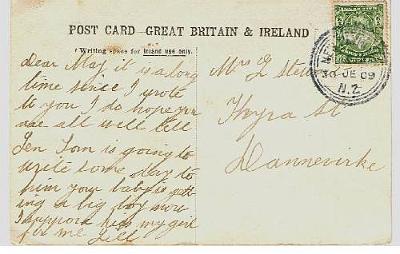 POST CARD GREAT BRITAIN & IRELAND
(Writing space for inland use only.)
Dear May it is a long
time since I wrote
to you I do hope you
are all well tell
Len Tom is going to
write some day to
him your baby is gett
ing a big boy now
I suppose kiss my girl
for me Lill
Mrs G
Thyra St
Dannevirke
30 JE 09
N.Z